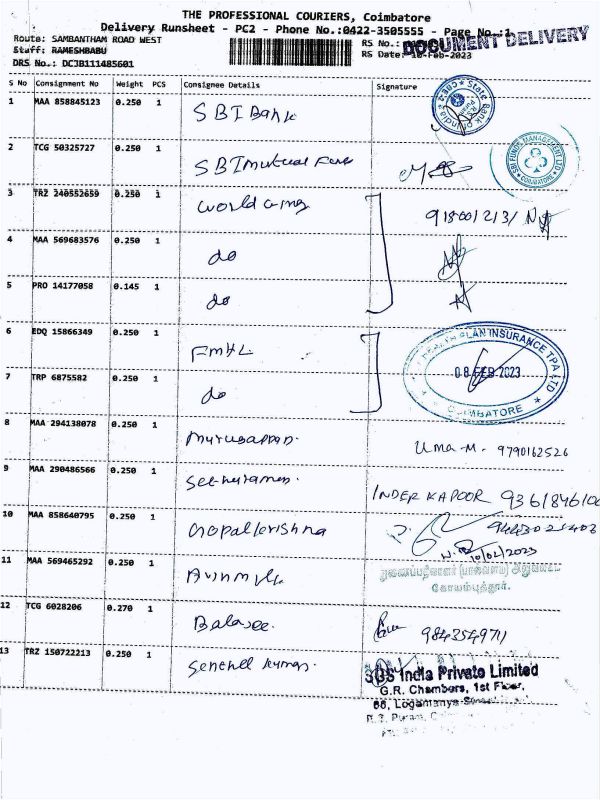 THE PROFESSIONAL COURIERS, Coimbatore
Delivery Runsheet - PC2 - Phone No.:0422-3505555 - Page No.:1
DOCUMENT DELIVERY
Route: SAMBANTHAM ROAD WEST
RS No.:
Staff: RAMESHBABU
RS Date: 10-Feb-2023
DRS No.: DC3B111485601
S No Consignment No Weight PCS Consignee Details Signature
1 MAA 858845123 0.250 1 SBI Bank
State Bank of India
2 TCG 50325727 0.250 1 SBI mutual
SBI FUNDS MANAGEMENT LTD COIMBATORE
3 TRZ 240552659 0.250 1 world
4 MAA 569683576 0.250 1 do
5 PRO 14177058 0.145 1 do
6 EDQ 15866349 0.250 1 FMHL
HEALTH PLAN INSURANCE TPA LTD
08 FEB 2023
COIMBATORE
7 TRP 6875582 0.250 1 do
8 MAA 294138078 0.250 1 Murugappan. Uma-M- 9790162526
9 MAA 290486566 0.250 1 INDER KAPOOR
10 MAA 858640795 0.250 1 Gopalkrishna
10/02/2023
11 MAA 569465292 0.250 1
கோயம்புத்தூர்.
12 TCG 6028206 0.270 1 Balajee. 9843549711
13 TRZ 150722213 0.250 1 Senthil kumar.
SGS India Private Limited
G.R. Chambers, 1st Floor,